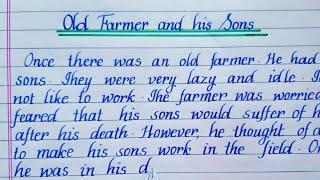 Old Farmer and his Sons
Once there was an old farmer. He had
sons. They were very lazy and idle.
not like to work. The farmer was worried
feared that his sons would suffer of
after his death. However, he thought of
to make his sons work in the field.
he was in his d